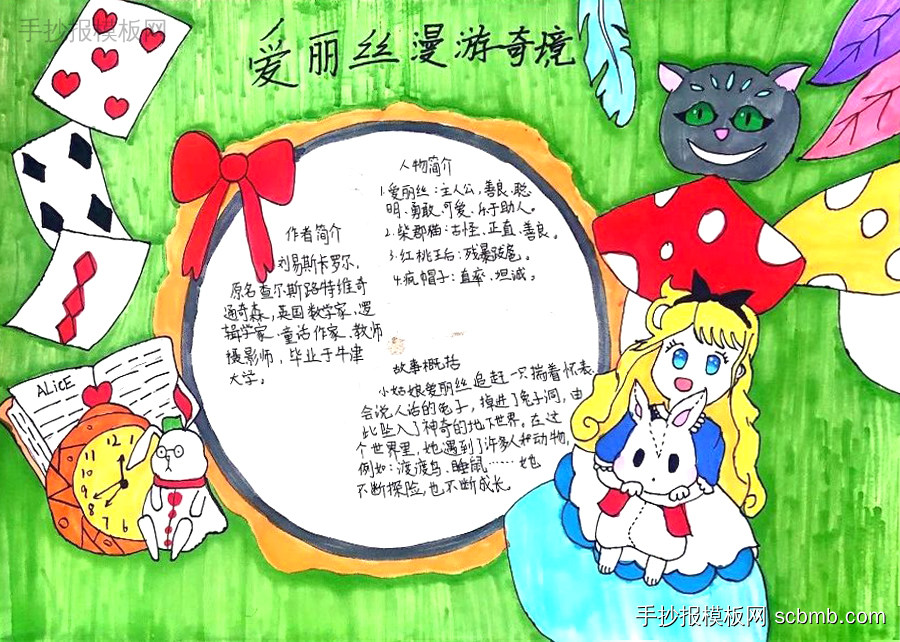 手抄报模板网
爱丽丝漫游奇境
人物简介
1.爱丽丝：主人公，善良、聪
明、勇敢、可爱、乐于助人。
2.柴郡猫：古怪、正直、善良。
3.红桃王后：残暴跋扈。
4.疯帽子：直率、坦诚。
作者简介
刘易斯卡罗尔，
原名查尔斯路特维奇
道奇森，英国数学家、逻
辑学家、童话作家、教师
摄影师，毕业于牛津
大学。
故事概括
小姑娘爱丽丝追赶一只揣着怀表、
会说人话的兔子，掉进了兔子洞，由
此坠入了神奇的地下世界。在这
个世界里，她遇到了许多人和动物，
例如：渡渡鸟、睡鼠……她
不断探险，也不断成长
ALiCE
12
1
2
3
4
5
6
7
8
9
10
11
手抄报模板网 scbmb.com